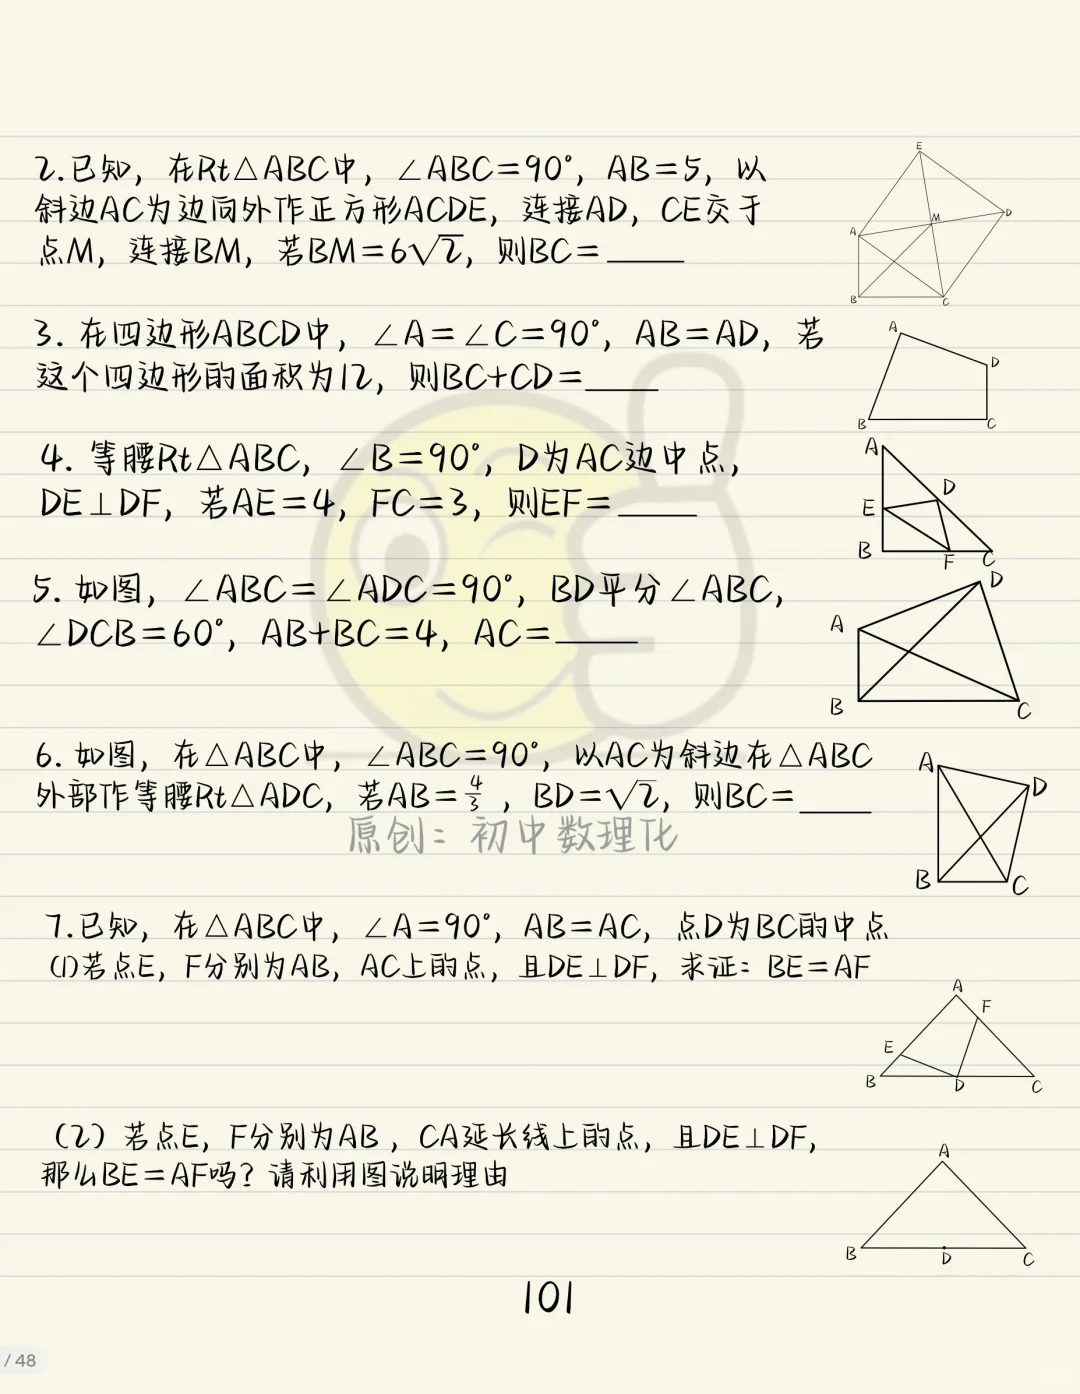 2.已知，在Rt△ABC中，∠ABC=90°，AB=5，以
斜边AC为边向外作正方形ACDE，连接AD，CE交于
点M，连接BM，若BM=6√2，则BC=____
E
M
D
A
B
C
3. 在四边形ABCD中，∠A=∠C=90°，AB=AD，若
这个四边形的面积为12，则BC+CD=____
A
D
B
C
4. 等腰Rt△ABC，∠B=90°，D为AC边中点，
DE⊥DF，若AE=4，FC=3，则EF=____
A
D
E
B
F
C
5. 如图，∠ABC=∠ADC=90°，BD平分∠ABC，
∠DCB=60°，AB+BC=4，AC=____
D
A
B
C
6. 如图，在△ABC中，∠ABC=90°，以AC为斜边在△ABC
外部作等腰Rt△ADC，若AB=4/3，BD=√2，则BC=____
A
D
B
C
原创：初中数理化
7.已知，在△ABC中，∠A=90°，AB=AC，点D为BC的中点
(1)若点E，F分别为AB，AC上的点，且DE⊥DF，求证：BE=AF
A
F
E
B
D
C
（2）若点E，F分别为AB，CA延长线上的点，且DE⊥DF，
那么BE=AF吗？请利用图说明理由
A
B
D
C
101
/ 48